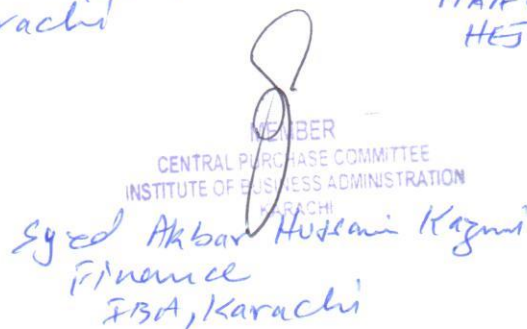 HEJ
MEMBER
CENTRAL PURCHASE COMMITTEE
INSTITUTE OF BUSINESS ADMINISTRATION
KARACHI
Syed Akbar Hussain Kazmi
Finance
IBA, Karachi